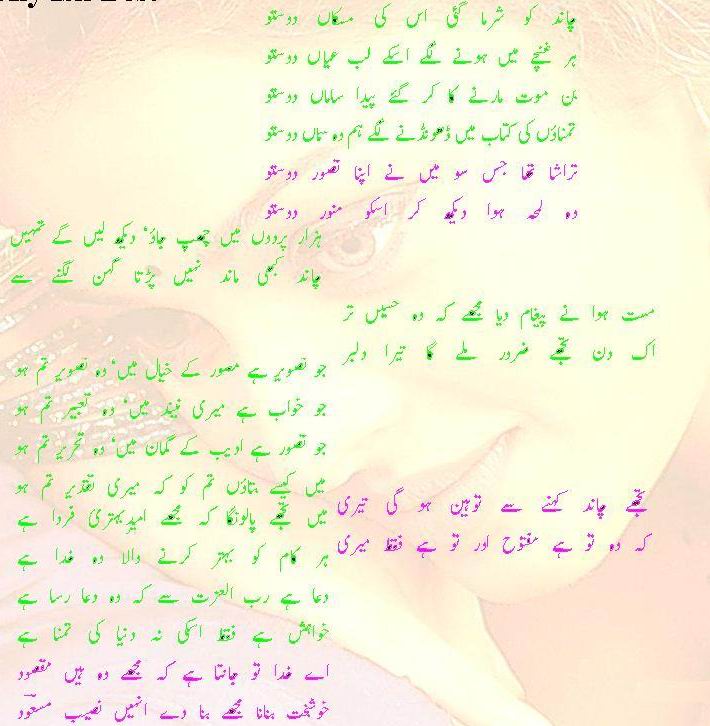 چاند کو شرما گئی اس کی مسکاں دوستو
ہر غنچے میں ہونے لگے اسکے لب عیاں دوستو
بن موت مارنے کا کر گئے پیدا ساماں دوستو
تمناؤں کی کتاب میں ڈھونڈنے لگے ہم وہ سماں دوستو
تراشا تھا جس سو میں نے اپنا تصور دوستو
وہ لمحہ ہوا دیکھ کر اسکو منور دوستو
ہزار پردوں میں چھپ جاؤ‘ دیکھ لیں گے تمہیں
چاند کبھی ماند نہیں پڑتا گہن لگنے سے
مست ہوا نے پیغام دیا مجھے کہ وہ حسیں تر
اک دن تجھے ضرور ملے گا تیرا دلبر
جو تصویر ہے مصور کے خیال میں‘ وہ تصویر تم ہو
جو خواب ہے میری نیند میں‘ وہ تعبیر تم ہو
جو تصور ہے ادیب کے گمان میں‘ وہ تحریر تم ہو
میں کیسے بتاؤں تم کو کہ میری تقدیر تم ہو
تجھے چاند کہنے سے توہین ہو گی تیری
کہ وہ تو ہے مفتوح اور تو ہے فقط میری
میں تجھے پالونگا کہ مجھے امیدِ بہتریٔ فردا ہے
ہر کام کو بہتر کرنے والا وہ خدا ہے
دعا ہے رب العزت سے کہ وہ دعا رسا ہے
خواہش ہے فقط اسکی نہ دنیا کی تمنا ہے
اے خدا تو جانتا ہے کہ مجھے وہ ہیں مقصود
خوشبخت بنانا مجھے بنا دے انہیں نصیب مسعودؔ